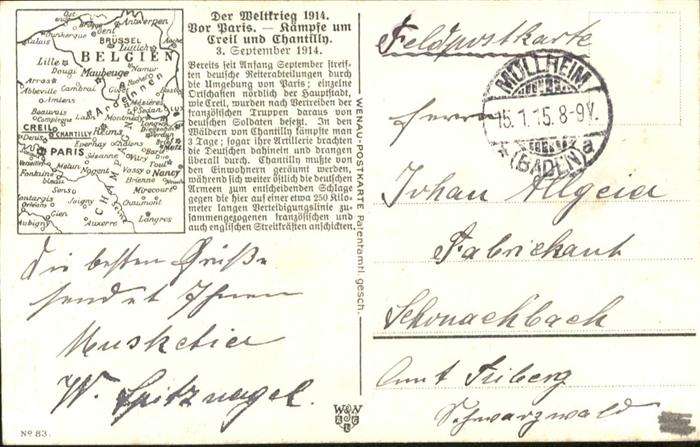 Der Weltkrieg 1914.
Vor Paris. — Kämpfe um
Creil und Chantilly.
3. September 1914.
Bereits seit Anfang September streif-
ten deutsche Reiterabteilungen durch
die Umgebung von Paris; einzelne
Ortschaften nördlich der Hauptstadt,
wie Creil, wurden nach Vertreiben der
französischen Truppen daraus von
deutschen Soldaten besetzt. In den
Wäldern von Chantilly kämpfte man
3 Tage; sogar ihre Artillerie brachten
die Deutschen dahin und drangen
überall durch. Chantilly mußte von
den Einwohnern geräumt werden,
während sich weiter östlich die deutschen
Armeen zum entscheidenden Schlage
gegen die hier auf einer etwa 250 Kilo-
meter langen Verteidigungslinie zu-
sammengezogenen französischen und
auch englischen Streitkräften anschickten.
Ostende
Antwerpen
Dunkerque
Calais
BRÜSSEL
Lüttich
BELGIEN
Lille
Namur
Douai
Maubeuge
Arras
Abbeville
Cambrai
Amiens
Mézières
Sedan
Beauvais
Laon
Montmédy
Compiègne
CREIL
CHANTILLY
Reims
Denis
Epernay
Châlons
Metz
PARIS
Versailles
Toul
Melun
Nogent
Vassy
NANCY
Fontaine
Sens
Troyes
Mirecourt
Joigny
Chaumont
Orléans
Gien
Auxerre
Langres
Aubigny
Die besten Grüße
sendet Ihnen
Musketier
W. Spitznagel.
No 83.
WENAU-POSTKARTE Patentamtl. gesch.
W N
Feldpostkarte
MÜLLHEIM
15.1.15.8-9V.
* (BADEN) a
Herrn
Johan Allgeier
Fabrikant
Schonachbach
Amt Triberg
Schwarzwald